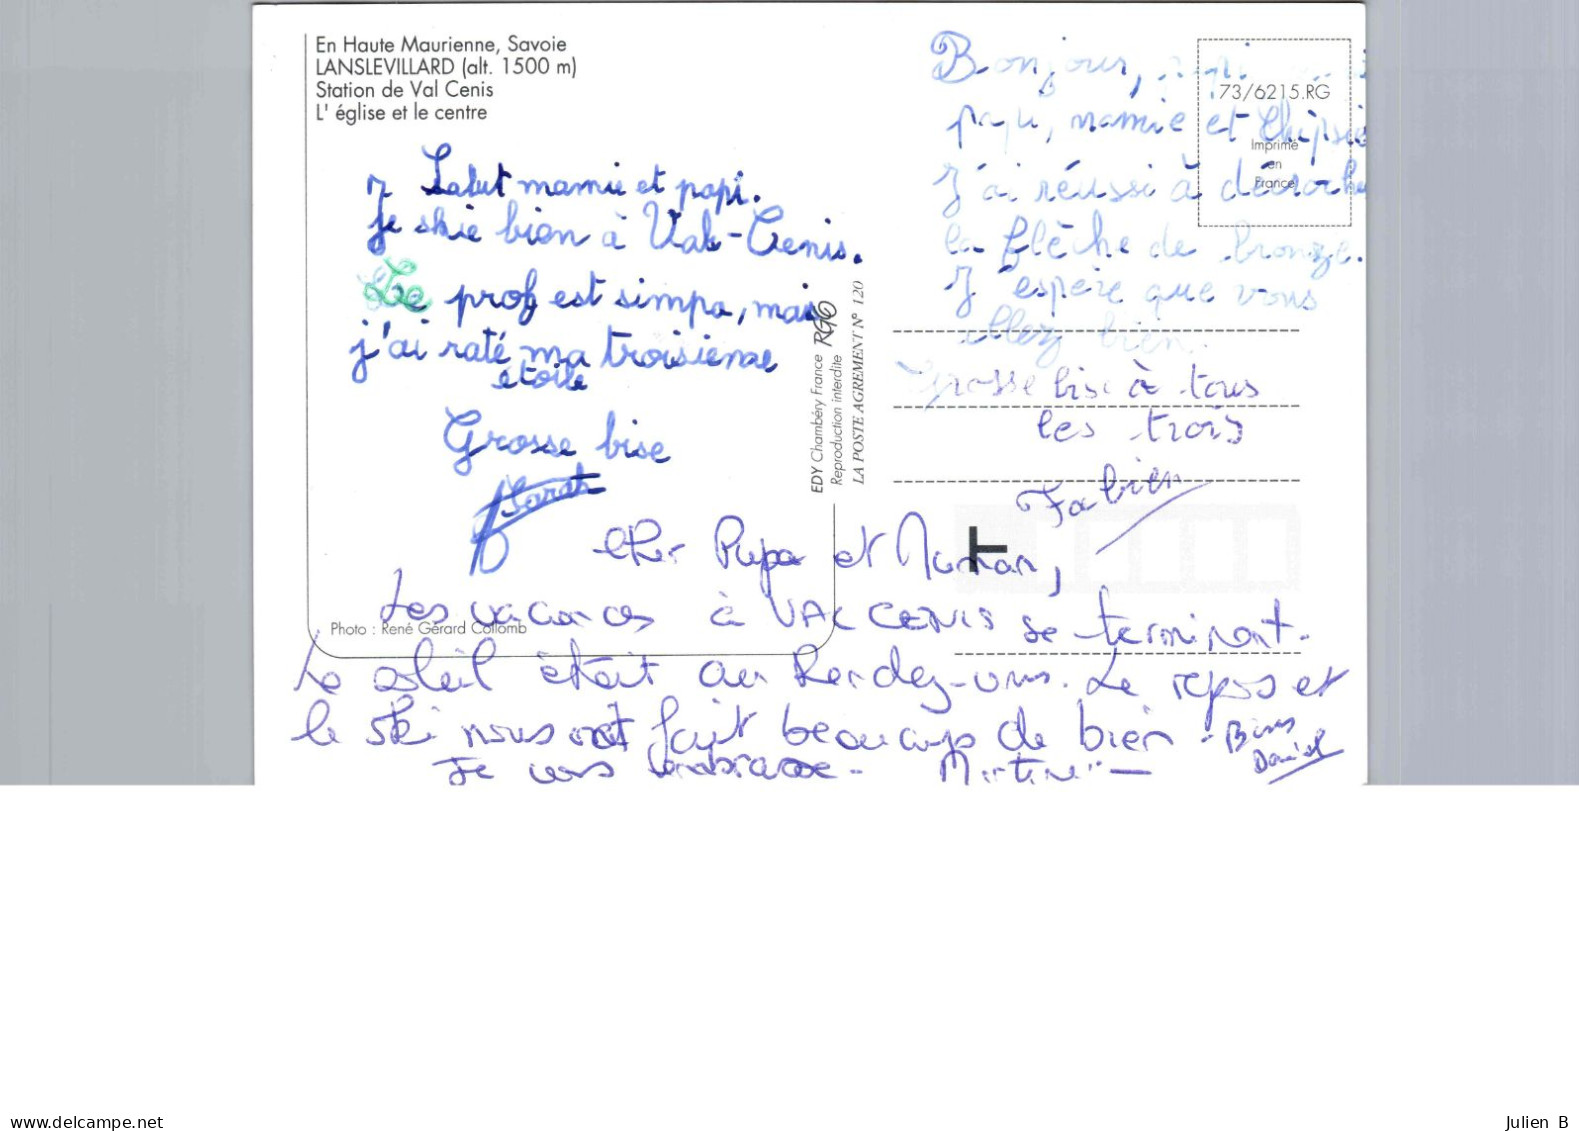 En Haute Maurienne, Savoie
LANSLEVILLARD (alt. 1500 m)
Station de Val Cenis
L' église et le centre
Salut mamie et papi.
Je skie bien à Val-Cenis.
Le prof est simpa, mais
j'ai raté ma troisième
étoile
Grosse bise
Sarah
EDY Chambéry France
Reproduction interdite
LA POSTE AGREMENT N° 120
73/6215.RG
Imprimé
en
France
Bonjour,
papi, mamie et Chipsie
J'ai réussi à décrocher
la flèche de bronze.
J'espère que vous
allez bien.
Grosse bise à tous
les trois
Fabien
T
Cher Papa et Maman,
Les vacances à VAL CENIS se terminent.
Photo : René Gérard Collomb
Le soleil était au Rendez-vous. Le repos et
le ski nous ont fait beaucoup de bien.
Je vous embrasse. Martine
Bises
Daniel
www.delcampe.net
Julien B